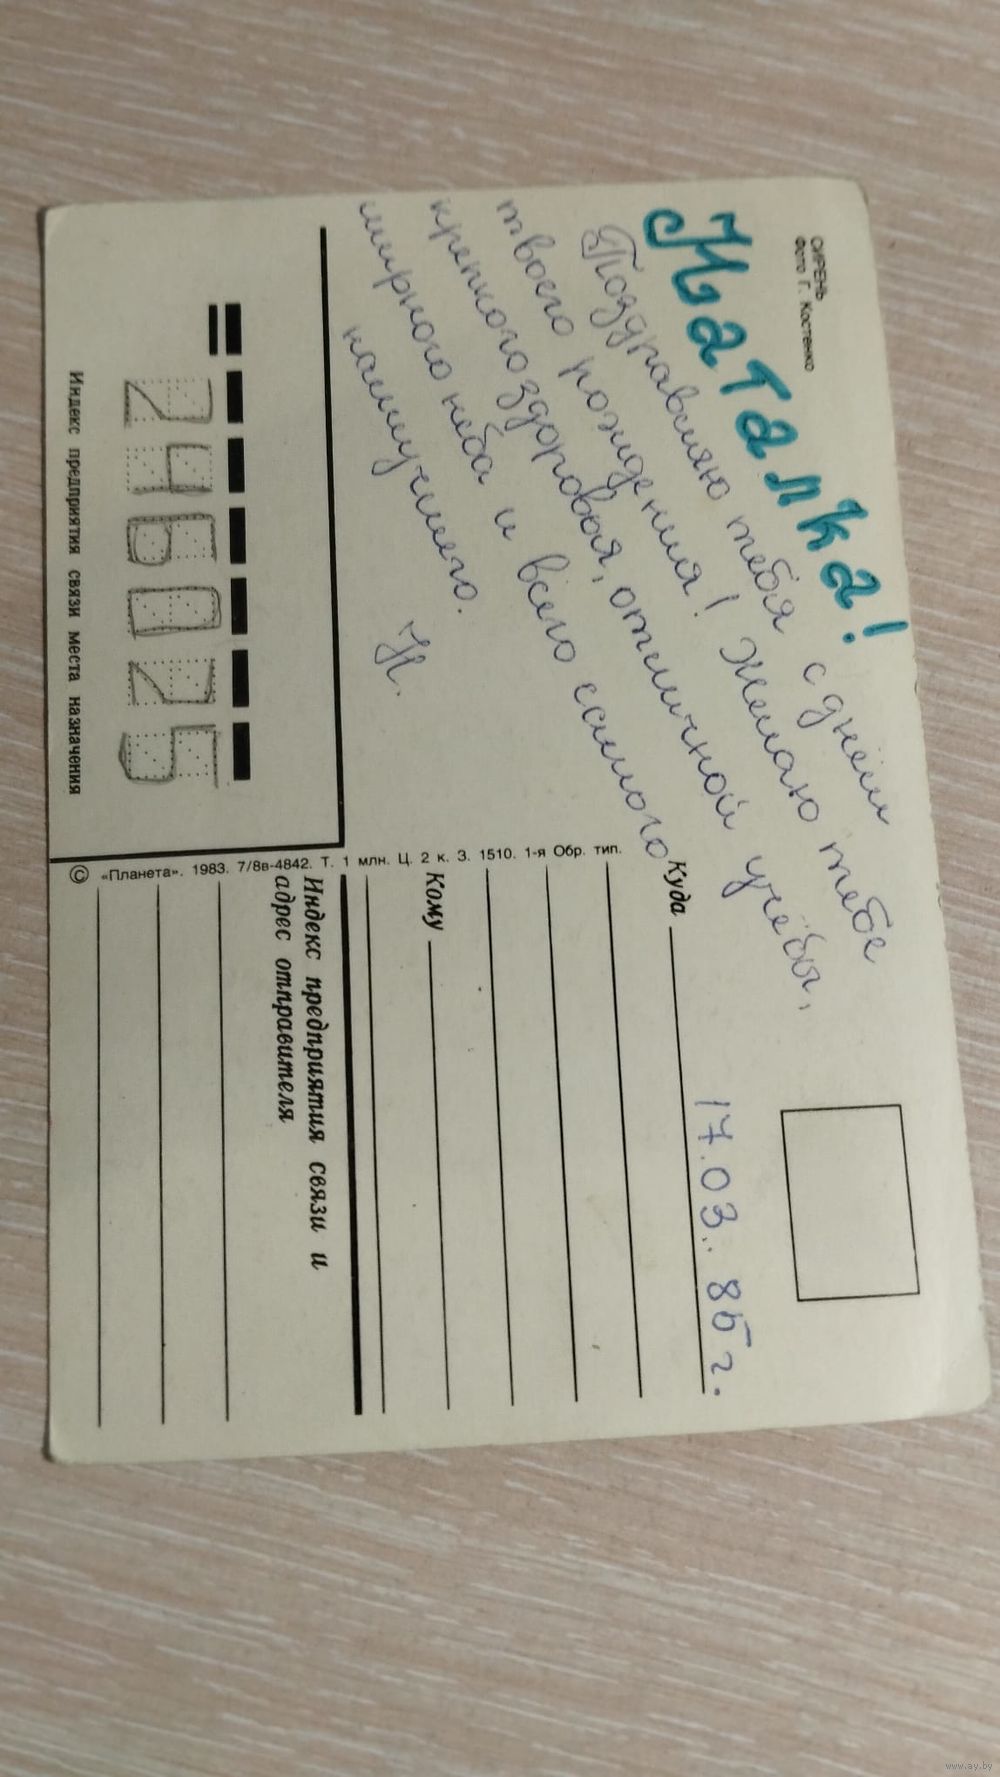 СИРЕНЬ
Фото Г. Костенко
Наталка!
Поздравляю тебя с днём
твоего рождения! Желаю тебе
крепкого здоровья, отличной учёбы,
мирного неба и всего самого
наилучшего.
Н.
246025
Индекс предприятия связи места назначения
© «Планета». 1983. 7/8в-4842. Т. 1 млн. Ц. 2 к. З. 1510. 1-я Обр. тип.
17.03.. 85 г.
Куда
Кому
Индекс предприятия связи и
адрес отправителя
www.ay.by